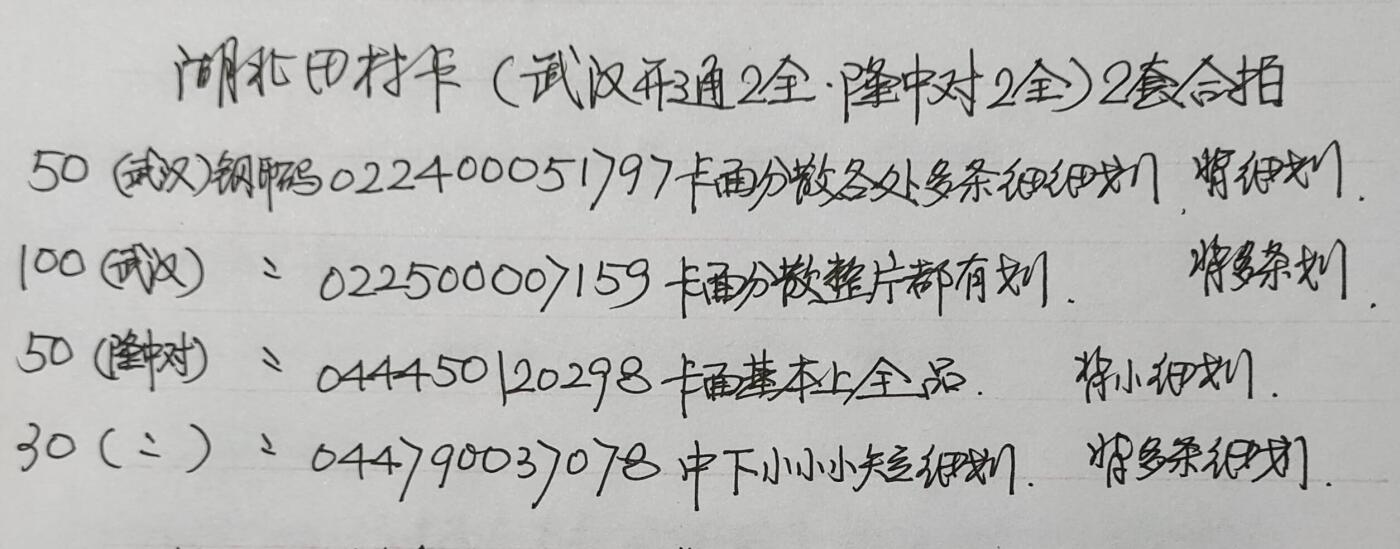 湖北田村卡(武汉开通2全·隆中对2全)2套合拍
50(武汉)钢印码022400051797卡面分散各处多条细细划,背细划.
100(武汉) 〃 022500007159卡面分散整片都有划. 背多条划.
50(隆中对) 〃 044450120298卡面基本上全品. 背小细划.
30(〃) 〃 044790037078中下小小小短细划. 背多条细划.